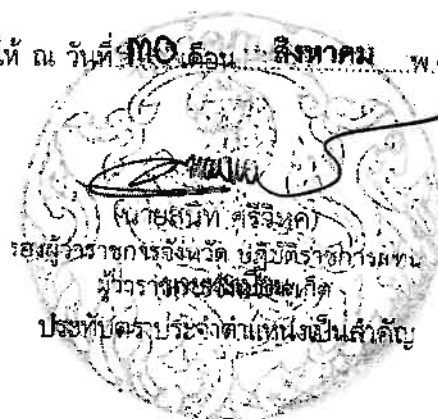 ให้ ณ วันที่ ๓๐ เดือน สิงหาคม พ.
(นายสนิท ศรีวิหค)
รองผู้ว่าราชการจังหวัด ปฏิบัติราชการแทน
ผู้ว่าราชการจังหวัดภูเก็ต
ประทับตราประจำตำแหน่งเป็นสำคัญ